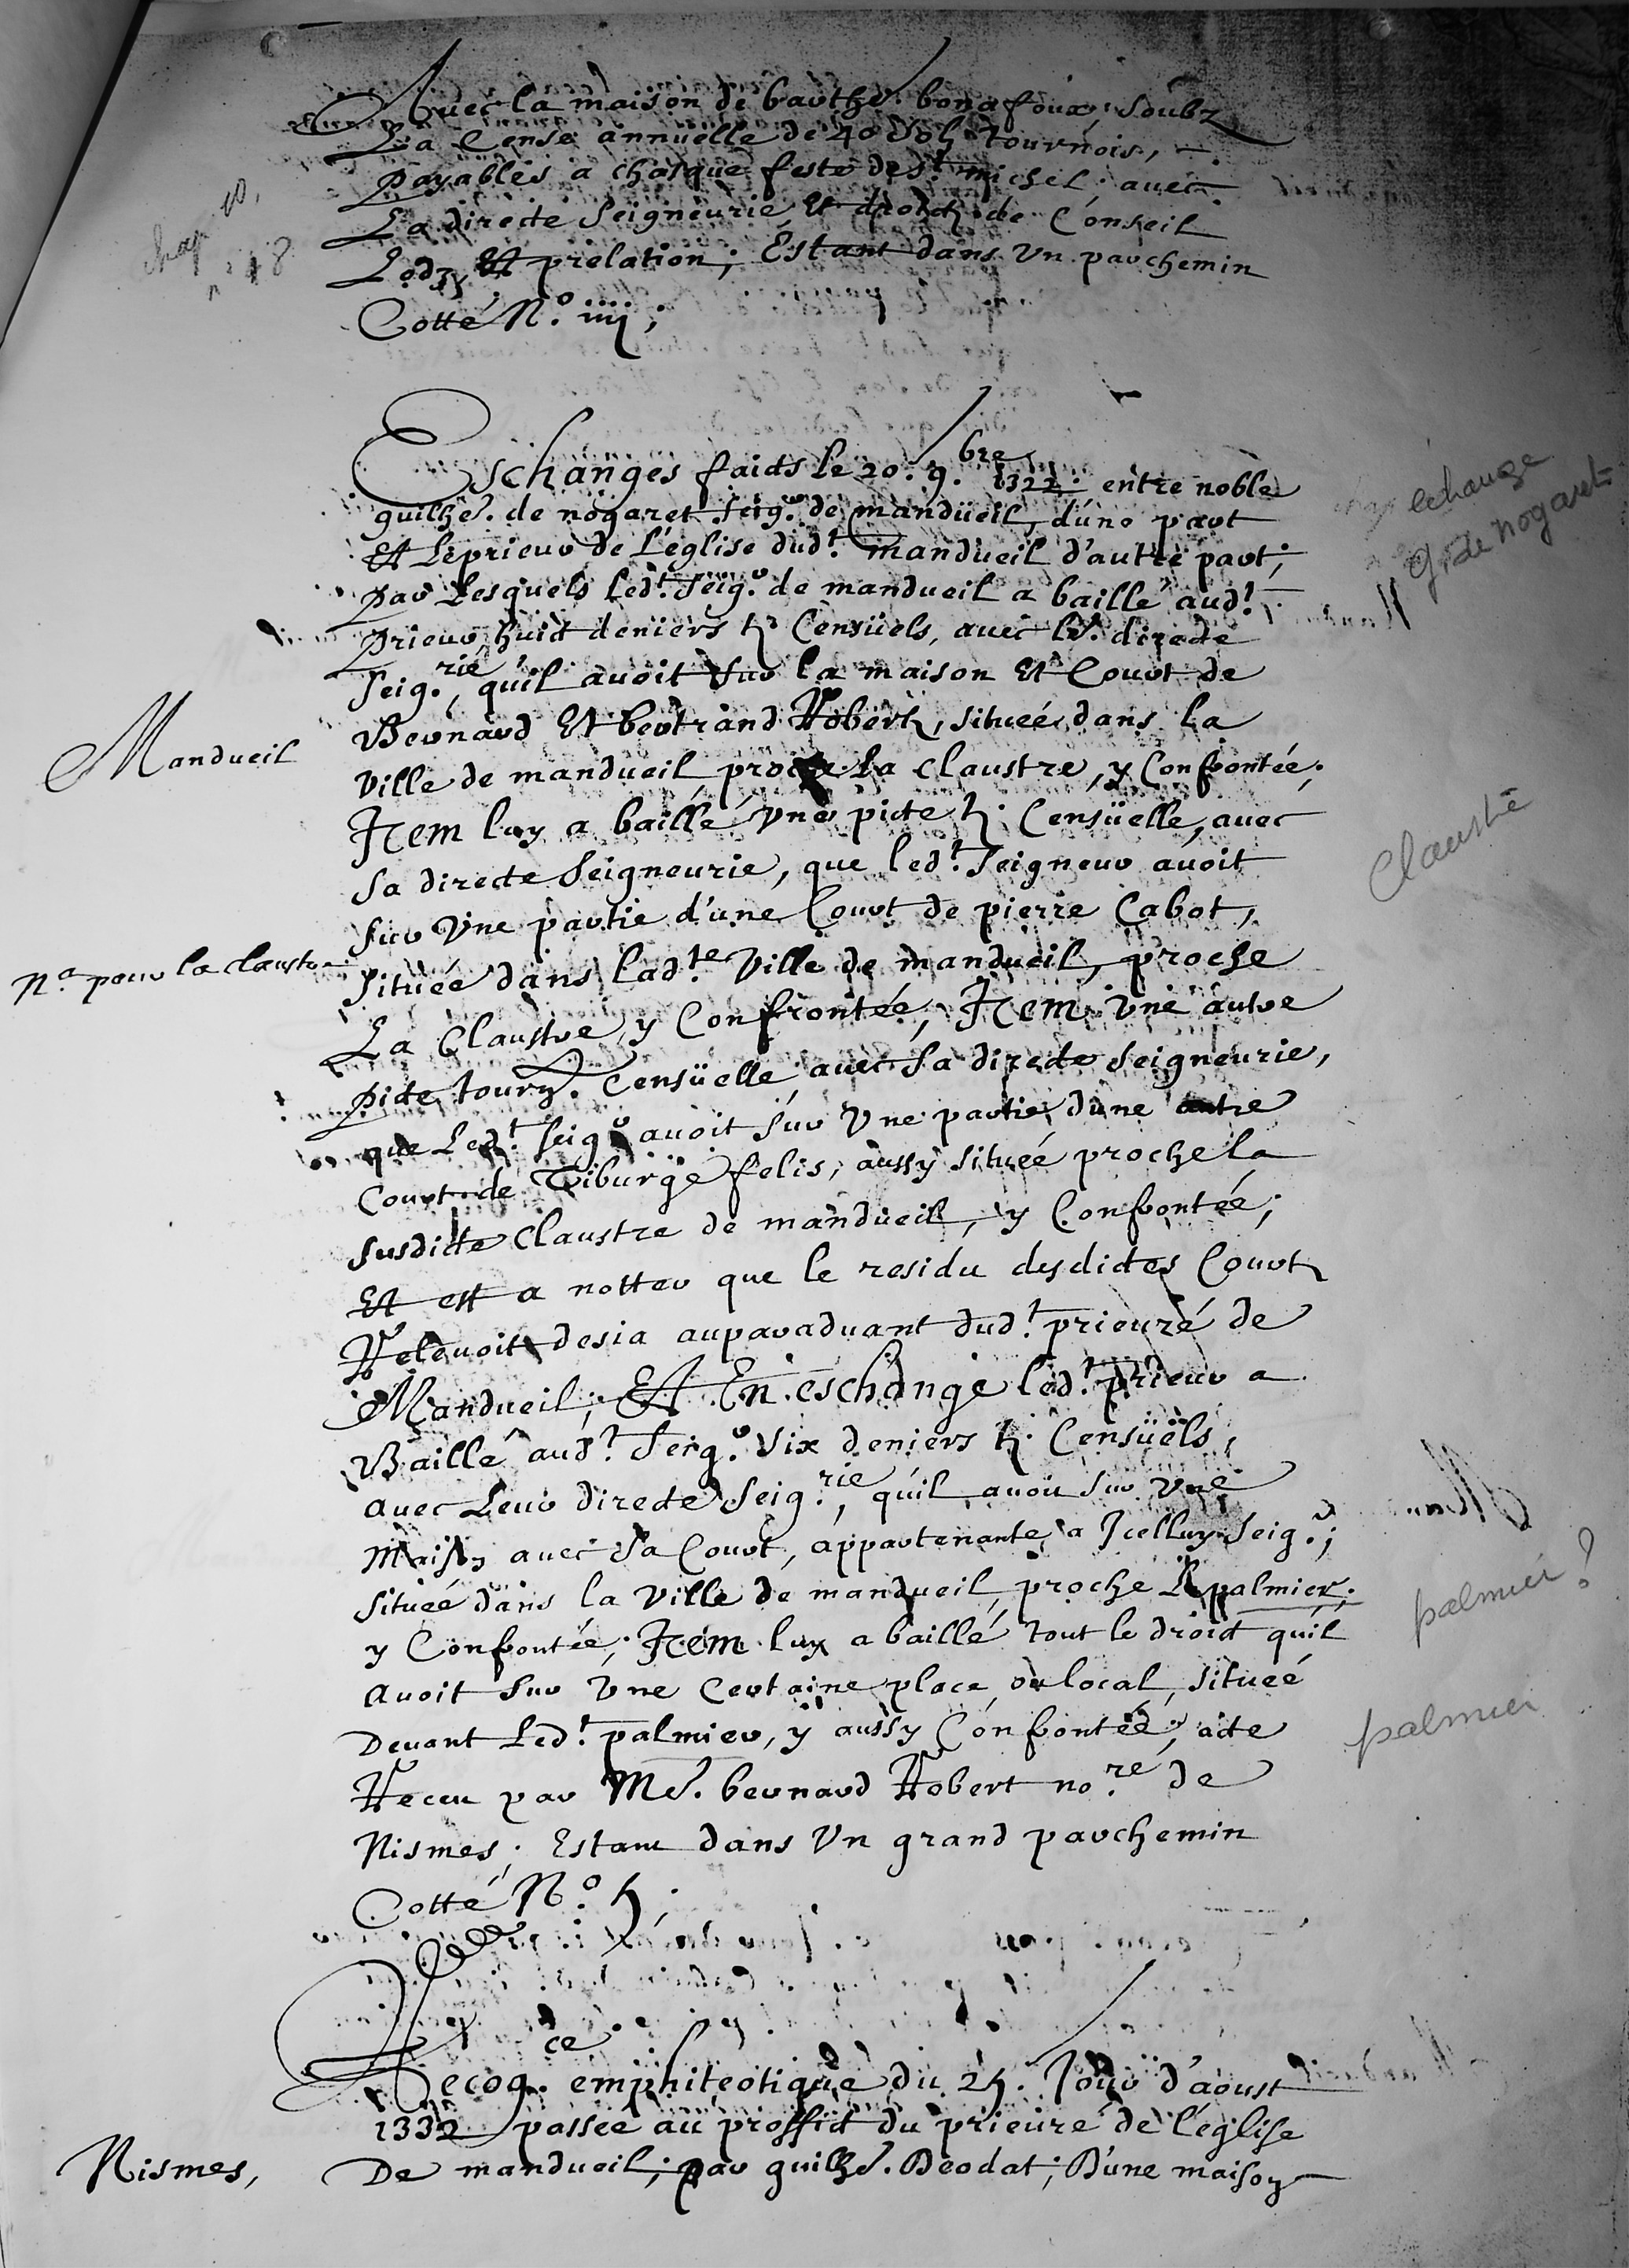 Avec la maison de barthe. bonafoux, soubz
La Cense annuelle de 40 solz tournois,
payables a chasque feste de st. michel, avec
La directe seigneurie Et droictz de Conseil
Lodz Et prelation; Estant dans Un parchemin
Cotté No. iiij;
chap 10,
n. 48
Eschanges faicts le 20. 9.bre 1322. entre noble
guilhe. de nogaret seigr. de mandueil, d'une part
Et Le prieur de L'eglise dudt. mandueil d'autre part;
par Lesquels ledt. seigr. de mandueil a baillé audt.
prieur, huict deniers tz Censüels, avec le. directe
seig.rie, qu'il avoit sur la maison Et Court de
Bernard Et bertrand Robertz, situeé dans la
Ville de mandueil, proche La Claustre, y Confrontée;
Item luy a baillé Une picte tz. Censüelle, avec
sa directe seigneurie, que ledt. seigneur avoit
sur Une partie d'une Court de pierre Cabot,
située dans ladte. Ville de mandueil, proche
La Claustre, y Confrontée; Item Une autre
picte tourn. Censüelle avec sa directe seigneurie,
que Ledt. seigr avoit sur Une partie d'une autre
Court de Tiburge felis, aussy située proche la
susdicte Claustre de mandueil, y Confrontée;
Et est a notter que le residu desdictes Courtz
Relevoit desia auparaduant dudt. prieuré de
Mandueil; Et En eschange ledt. prieur a
Baillé audt. seigr. six deniers tz. Censüels,
avec Leur directe seig.rie, qu'il avoit sur Une
maison avec sa Court, appartenante a Icelluy seigr.;
située dans la Ville de mandueil, proche le palmier.
y Confrontée; Item luy a baillé tout le droict qu'il
avoit sur Une Certaine place, ou local, situeé
Devant Ledt. palmier, y aussy Confrontée; acte
Receu par Me. bernard Robert no.re de
Nismes; Estant dans Un grand parchemin
Cotté No. 5;
Mandueil
Na. pour la claustre
echange
G. de nogaret
Claustre
palmier?
palmier
Recog.ce emphiteotique du 25. Jour d'aoust
1332 passée au proffict du prieuré de L'eglise
De mandueil; par guilhe. Deodat; D'une maison
Nismes,